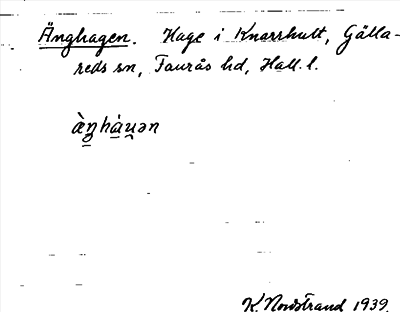 Änghagen. Hage i Knarrhult, Gälla-
reds sn, Faurås hd, Hall. l.
K. Nordstrand 1939.